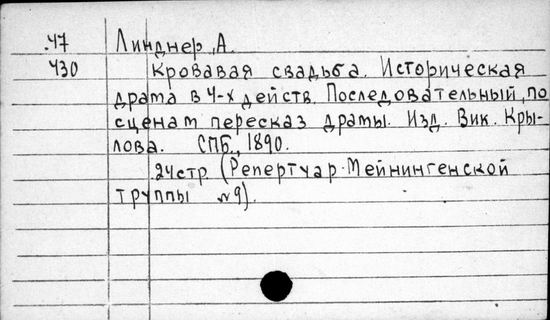 .47 Линднер, А.
430 Кровавая свадьба. Историческая
драма в 4-х действ. Последовательный, по
сценам пересказ драмы. Изд. Вик. Кры-
лова. СПБ., 1890.
24 стр. (Репертуар Мейнингенской
труппы №9).